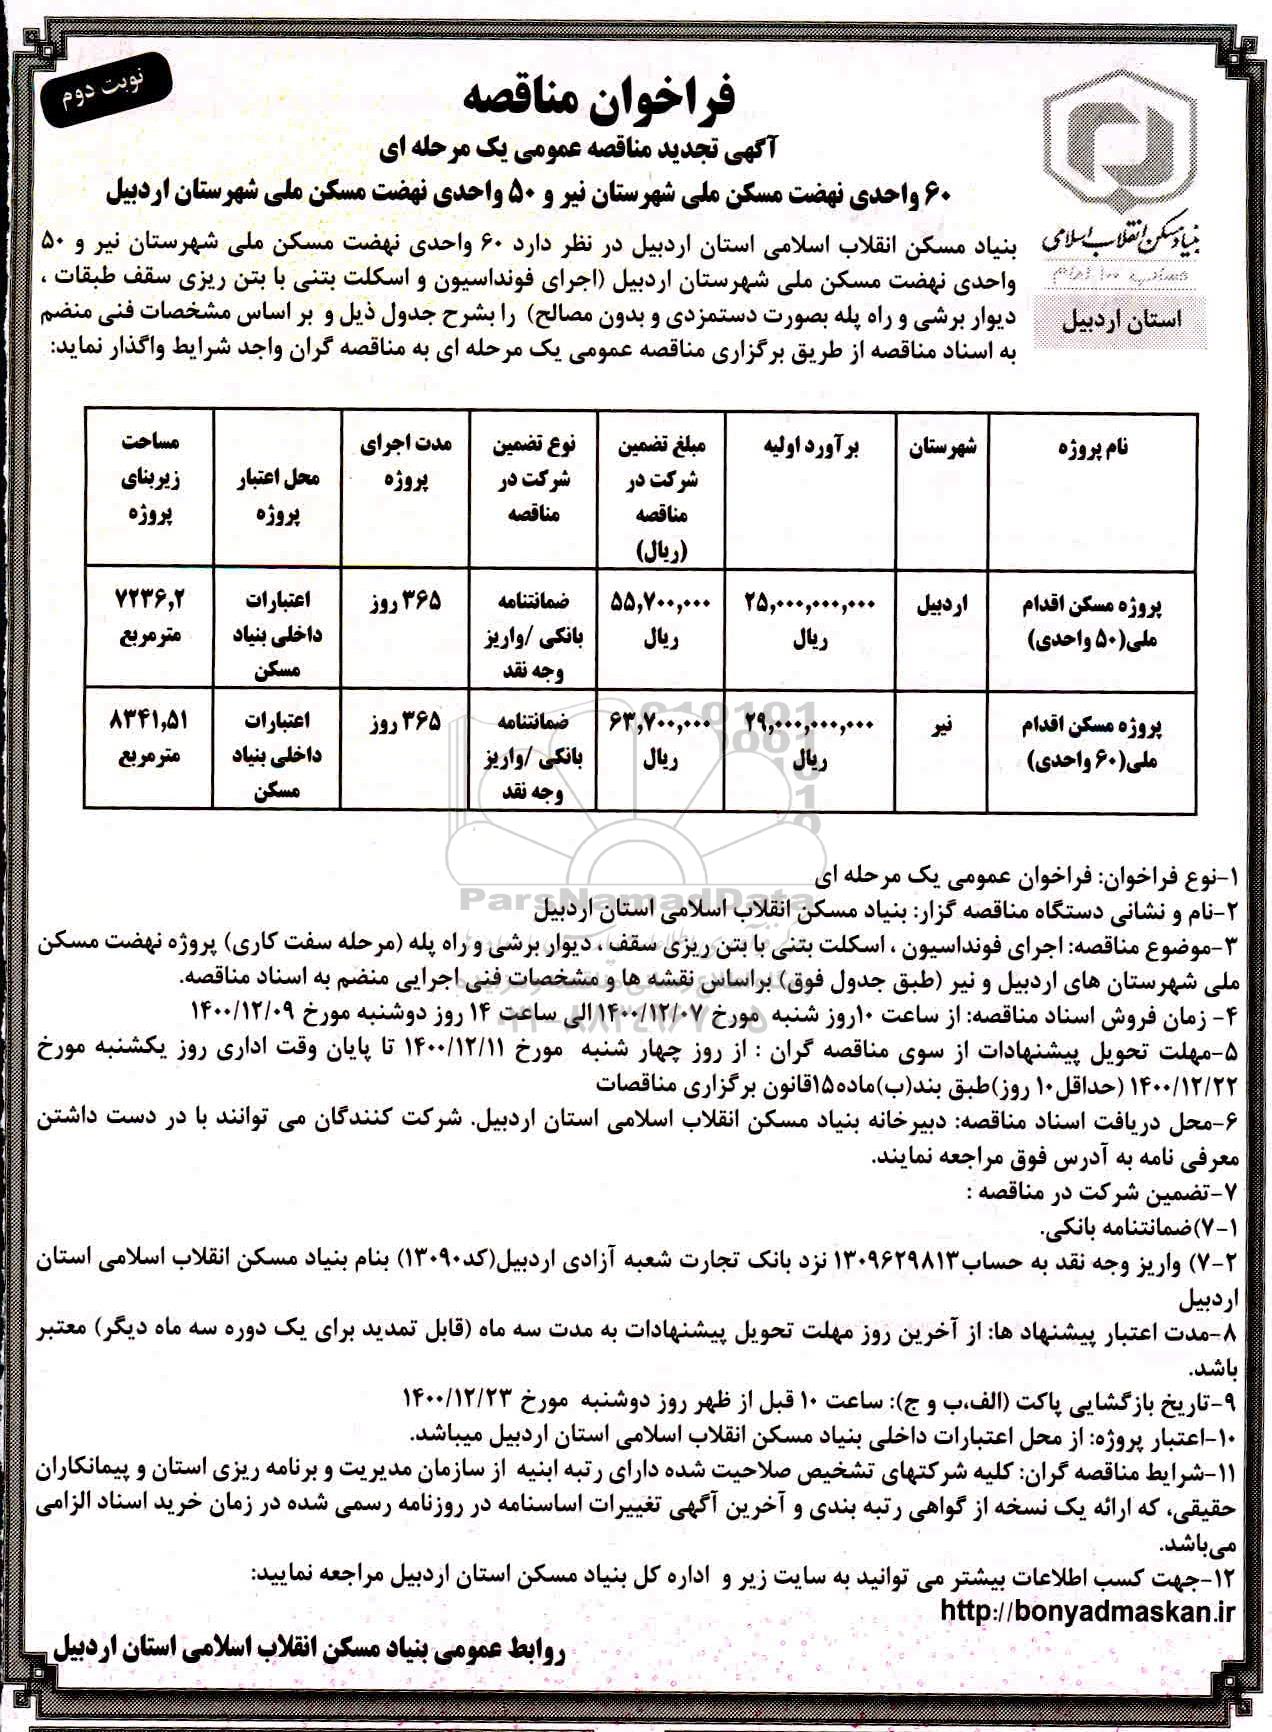 نوبت دوم
فراخوان مناقصه
آگهی تجدید مناقصه عمومی یک مرحله ای
۶۰ واحدی نهضت مسکن ملی شهرستان نیر و ۵۰ واحدی نهضت مسکن ملی شهرستان اردبیل
بنیاد مسکن انقلاب اسلامی
استان اردبیل
بنیاد مسکن انقلاب اسلامی استان اردبیل در نظر دارد ۶۰ واحدی نهضت مسکن ملی شهرستان نیر و ۵۰
واحدی نهضت مسکن ملی شهرستان اردبیل (اجرای فونداسیون و اسکلت بتنی با بتن ریزی سقف طبقات ،
دیوار برشی و راه پله بصورت دستمزدی و بدون مصالح) را بشرح جدول ذیل و بر اساس مشخصات فنی منضم
به اسناد مناقصه از طریق برگزاری مناقصه عمومی یک مرحله ای به مناقصه گران واجد شرایط واگذار نماید:
نام پروژه | شهرستان | برآورد اولیه | مبلغ تضمین شرکت در مناقصه (ریال) | نوع تضمین شرکت در مناقصه | مدت اجرای پروژه | محل اعتبار پروژه | مساحت زیربنای پروژه
پروژه مسکن اقدام ملی(۵۰ واحدی) | اردبیل | ۲۵,۰۰۰,۰۰۰,۰۰۰ ریال | ۵۵,۷۰۰,۰۰۰ ریال | ضمانتنامه بانکی /واریز وجه نقد | ۳۶۵ روز | اعتبارات داخلی بنیاد مسکن | ۷۲۳۶,۲ مترمربع
پروژه مسکن اقدام ملی(۶۰ واحدی) | نیر | ۲۹,۰۰۰,۰۰۰,۰۰۰ ریال | ۶۳,۷۰۰,۰۰۰ ریال | ضمانتنامه بانکی /واریز وجه نقد | ۳۶۵ روز | اعتبارات داخلی بنیاد مسکن | ۸۳۴۱,۵۱ مترمربع
ParsNamadData
۱-نوع فراخوان: فراخوان عمومی یک مرحله ای
۲-نام و نشانی دستگاه مناقصه گزار: بنیاد مسکن انقلاب اسلامی استان اردبیل
۳-موضوع مناقصه: اجرای فونداسیون ، اسکلت بتنی با بتن ریزی سقف ، دیوار برشی و راه پله (مرحله سفت کاری) پروژه نهضت مسکن
ملی شهرستان های اردبیل و نیر (طبق جدول فوق) براساس نقشه ها و مشخصات فنی اجرایی منضم به اسناد مناقصه.
۴- زمان فروش اسناد مناقصه: از ساعت ۱۰روز شنبه مورخ ۱۴۰۰/۱۲/۰۷ الی ساعت ۱۴ روز دوشنبه مورخ ۱۴۰۰/۱۲/۰۹
۵-مهلت تحویل پیشنهادات از سوی مناقصه گران : از روز چهار شنبه مورخ ۱۴۰۰/۱۲/۱۱ تا پایان وقت اداری روز یکشنبه مورخ
۱۴۰۰/۱۲/۲۲ (حداقل۱۰ روز)طبق بند(ب)ماده۱۵قانون برگزاری مناقصات
۶-محل دریافت اسناد مناقصه: دبیرخانه بنیاد مسکن انقلاب اسلامی استان اردبیل. شرکت کنندگان می توانند با در دست داشتن
معرفی نامه به آدرس فوق مراجعه نمایند.
۷-تضمین شرکت در مناقصه :
۷-۱)ضمانتنامه بانکی.
۷-۲) واریز وجه نقد به حساب۱۳۰۹۶۲۹۸۱۳ نزد بانک تجارت شعبه آزادی اردبیل(کد۱۳۰۹۰) بنام بنیاد مسکن انقلاب اسلامی استان
اردبیل
۸-مدت اعتبار پیشنهاد ها: از آخرین روز مهلت تحویل پیشنهادات به مدت سه ماه (قابل تمدید برای یک دوره سه ماه دیگر) معتبر
باشد.
۹-تاریخ بازگشایی پاکت (الف،ب و ج): ساعت ۱۰ قبل از ظهر روز دوشنبه مورخ ۱۴۰۰/۱۲/۲۳
۱۰-اعتبار پروژه: از محل اعتبارات داخلی بنیاد مسکن انقلاب اسلامی استان اردبیل میباشد.
۱۱-شرایط مناقصه گران: کلیه شرکتهای تشخیص صلاحیت شده دارای رتبه ابنیه از سازمان مدیریت و برنامه ریزی استان و پیمانکاران
حقیقی، که ارائه یک نسخه از گواهی رتبه بندی و آخرین آگهی تغییرات اساسنامه در روزنامه رسمی شده در زمان خرید اسناد الزامی
می‌باشد.
۱۲-جهت کسب اطلاعات بیشتر می توانید به سایت زیر و اداره کل بنیاد مسکن استان اردبیل مراجعه نمایید:
http://bonyadmaskan.ir
روابط عمومی بنیاد مسکن انقلاب اسلامی استان اردبیل